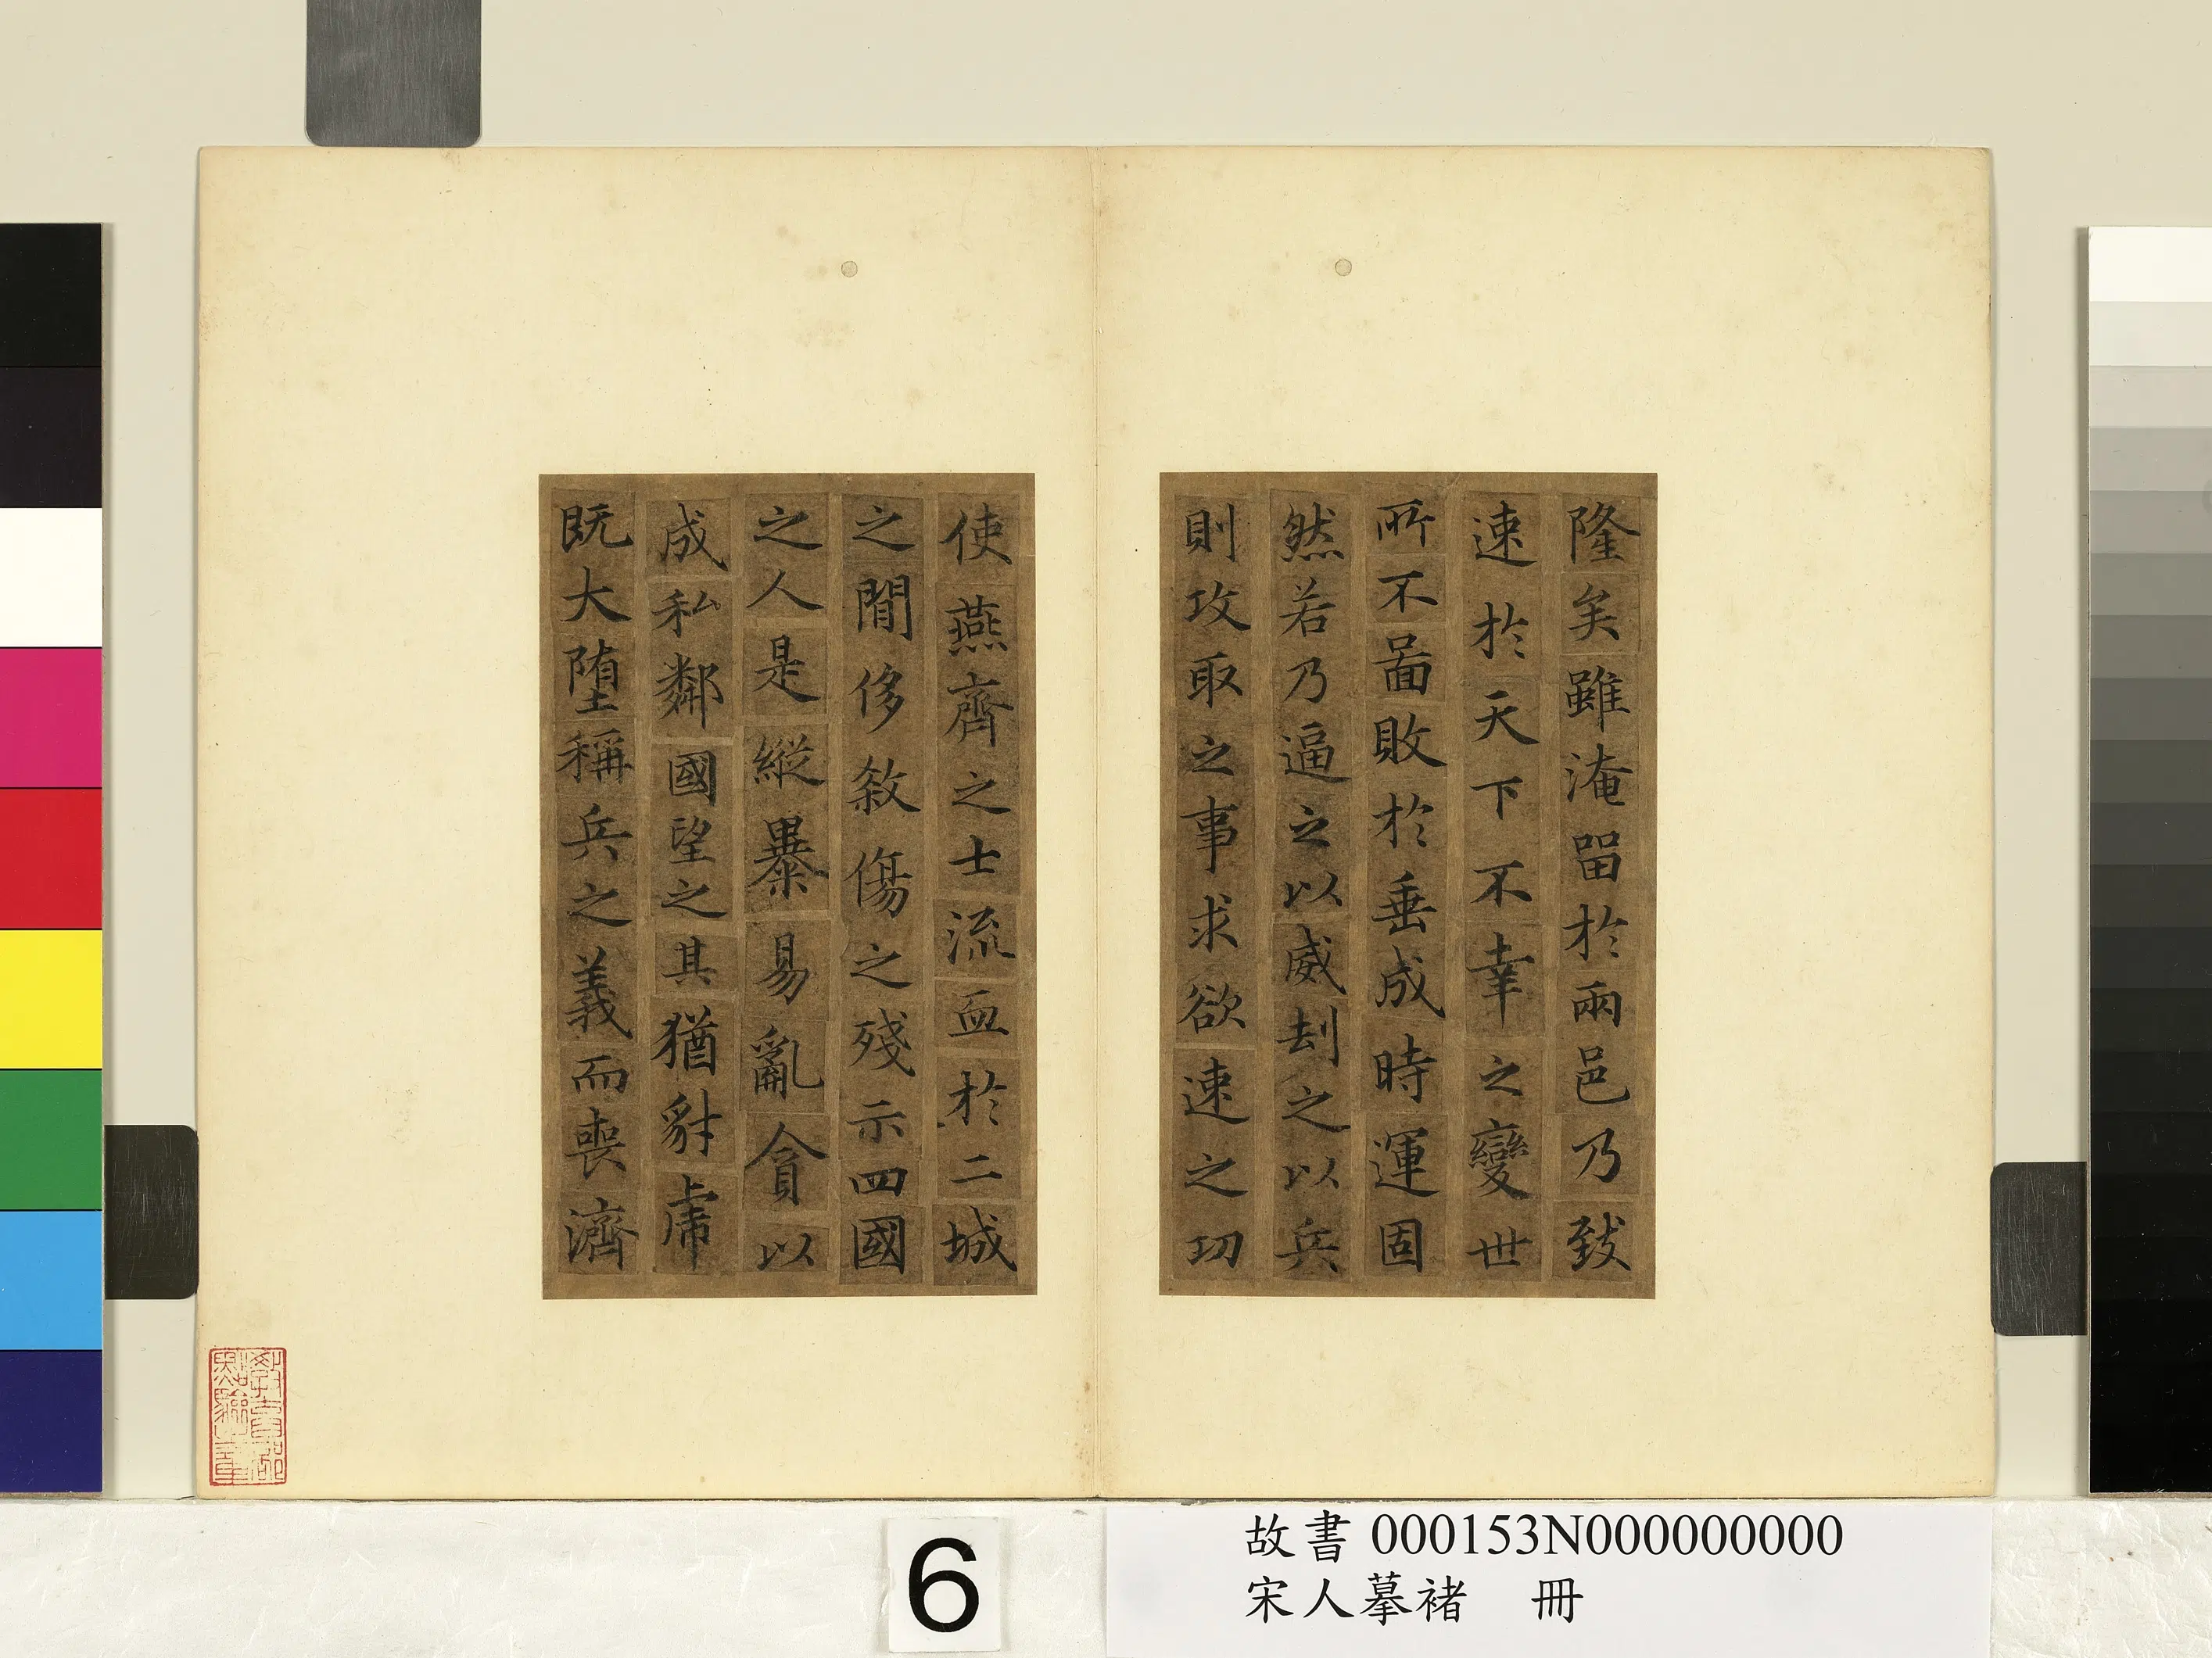 隆矣雖淹留於兩邑乃致
速於天下不幸之變世
所不啚敗於垂成時運固
然若乃逼之以威刦之以兵
則攻取之事求欲速之功
使燕齊之士流血於二城
之間侈敘傷之殘示四國
之人是縱暴易亂貪以
成私鄰國望之其猶豺虎
既大堕稱兵之義而喪濟
教育部點驗之章
6
故書 000153N000000000
宋人摹褚 冊